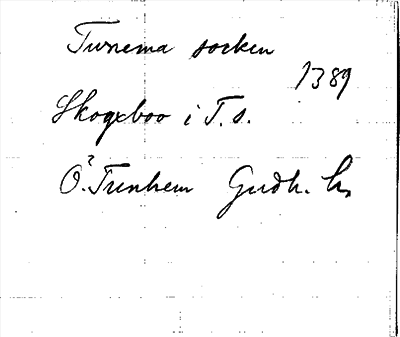 Tunema socken
1389
Skogxboo i T. s.
Ö? Trunhem Gudh. hs